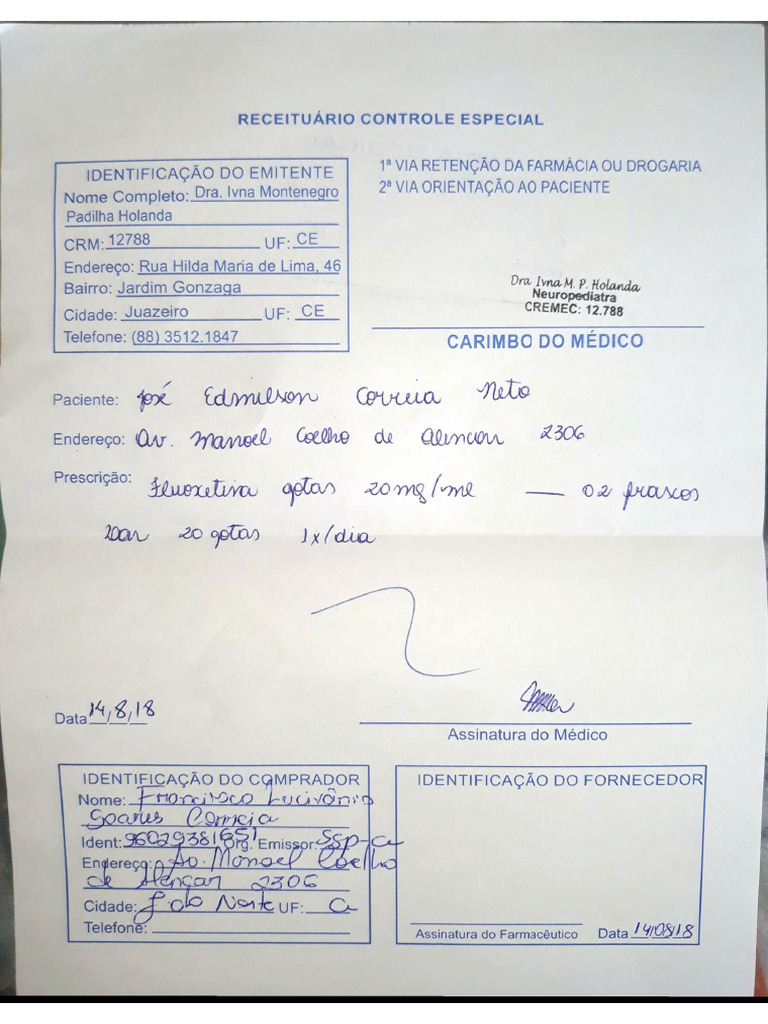 RECEITUÁRIO CONTROLE ESPECIAL
IDENTIFICAÇÃO DO EMITENTE
Nome Completo: Dra. Ivna Montenegro
Padilha Holanda
CRM: 12788 UF: CE
Endereço: Rua Hilda Maria de Lima, 46
Bairro: Jardim Gonzaga
Cidade: Juazeiro UF: CE
Telefone: (88) 3512.1847
1ª VIA RETENÇÃO DA FARMÁCIA OU DROGARIA
2ª VIA ORIENTAÇÃO AO PACIENTE
Dra Ivna M. P. Holanda
Neuropediatra
CREMEC: 12.788
CARIMBO DO MÉDICO
Paciente: José Edmilson Correia Neto
Endereço: Av. Manoel Coelho de Alencar 2306
Prescrição: Fluoxetina gotas 20mg/ml — 02 frascos
Dar 20 gotas 1x/dia
Data 14/8/18
Assinatura do Médico
IDENTIFICAÇÃO DO COMPRADOR
Nome: Francisco Lucivânio
Soares Correia
Ident: 96029381651 Org. Emissor: SSP-ce
Endereço: Av. Manoel Coelho
de Alencar 2306
Cidade: J. do Norte UF: Ce
Telefone:
IDENTIFICAÇÃO DO FORNECEDOR
Assinatura do Farmacêutico Data 14/08/18